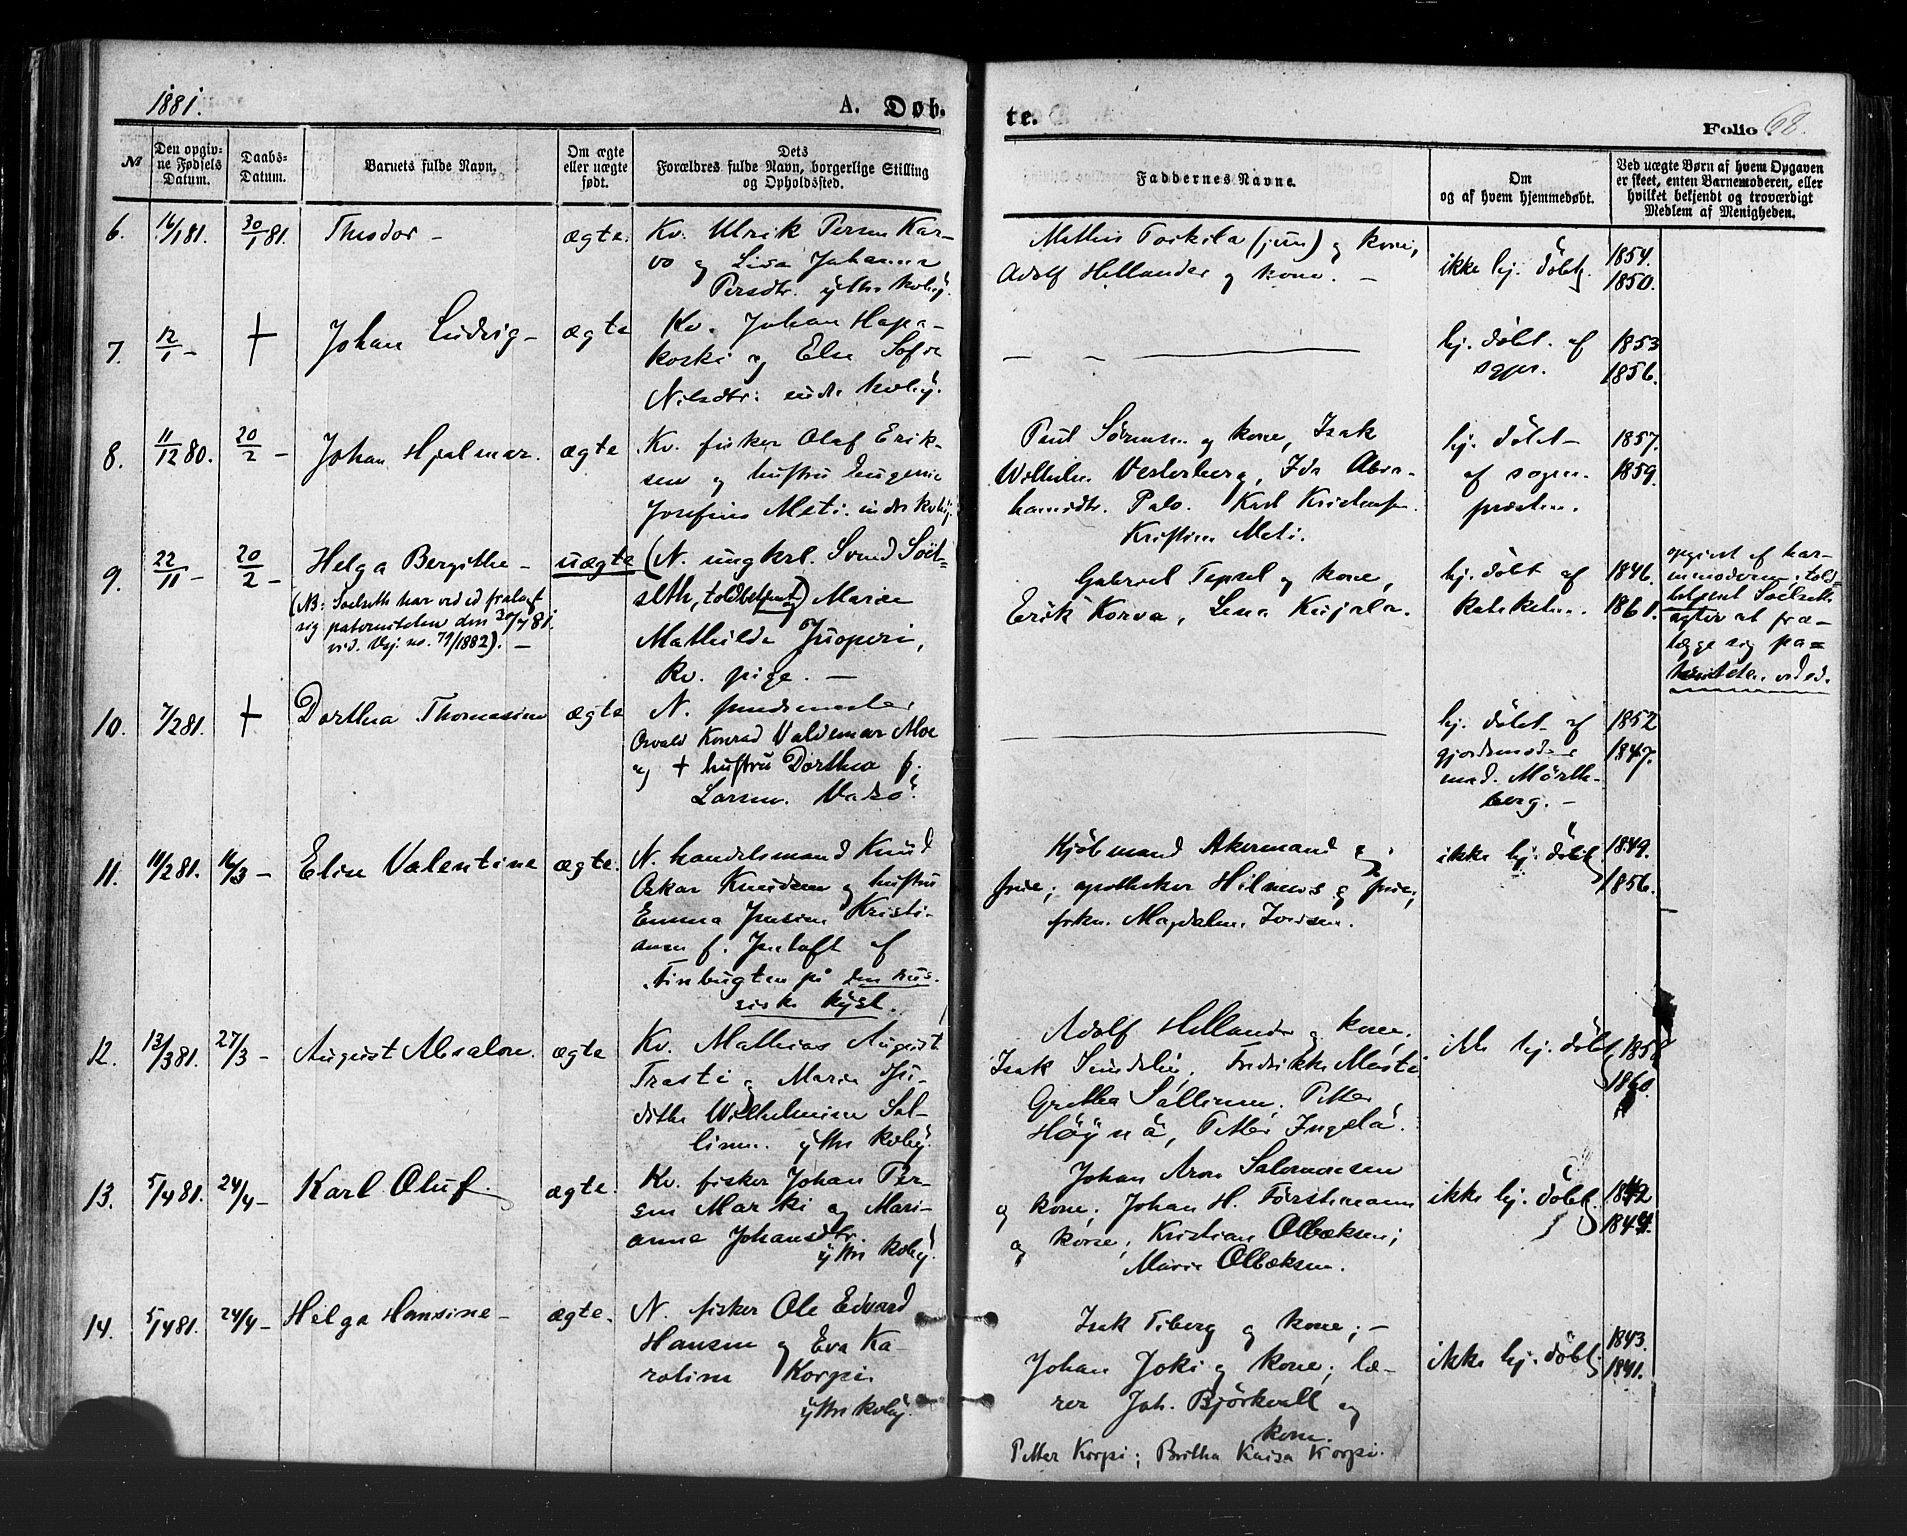 1881.
A. Døb-
te.
Folio 68.
№
Den opgiv-
ne Fødsels
Datum.
Daabs-
Datum.
Barnets fulde Navn.
Om ægte
eller uægte
født.
Dets
Forældres fulde Navn, borgerlige Stilling
og Opholdssted.
Faddernes Navne.
Om
og af hvem hjemmedøbt.
Ved uægte Børn af hvem Opgaven
er skeet, enten Barnemoderen, eller
hvilket bekjendt og troværdigt
Medlem af Menigheden.
6.
16/1 81.
30/1 81.
Theodor -
ægte.
Kv. Ulrik Persen Kar-
vo og Lisa Johanna
Persdtr. yttre kvby.
Mathis Torkila (jun) og kone,
Adolf Hellander og kone. -
ikke hj. døbt
1854.
1850.
7.
12/1 -
+
Johan Ludvig -
ægte
Kv. Johan Hapa-
koski og Else Sofie
Nilsdtr. indre kvby.
hj. døbt af
sgpr.
1853
1856.
8.
11/12 80.
20/2 -
Johan Hjalmar.
ægte
Kv. fisker Olaf Erik-
sen og hustru Eugenie
Josefine Meti. indre kvby.
Paul Sørensen og kone, Isak
Wilhelm Vesterberg, Ida Abra-
hamsdtr. Palo. Karl Kristensen.
Kristine Meti.
hj. døbt -
af sogne-
præsten.
1857.
1859.
9.
22/11 -
20/2 -
Helga Bergithe -
(NB: Soelseth har ved ed fralagt
sig paterniteten den 30/7 81.
vid. Vsj. no. 79/1882). -
uægte
(N. ungkrl. Svend Soel-
seth, toldbetjent) og Marie
Mathilde Juoperi,
kv. pige. -
Gabriel Tepsel og kone,
Erik Korva, Lena Kujala.
hj. døbt af
kateketen.
1846.
1861.
opgivet af bar-
nemoderen; told-
betjent Soelseth
agter at fra-
lægge sig pa-
terniteten ved ed.
10.
7/2 81.
+
Dorthea Thomasine
ægte
N.
Osvald Konrad Valdemar Moe
og + hustru Dorthea f.
Larsen. Vadsø.
hj. døbt af
gjordemoder
mad. Mørth-
berg. -
1852
1847.
11.
11/2 81.
16/3 -
Elise Valentine
ægte.
N. handelsmand Knud
Oskar Knudsen og hustru
Emma Jensine Kristi-
ansen f. Jentoft af
Finbugten på den rus-
siske kyst.
Kjøbmand Akermand og
frue; apotheker Hilmers og frue,
frkn. Magdalene Iversen.
ikke hj. døbt
1849.
1856.
12.
13/3 81.
27/3 -
August Absalon.
ægte
Kv. Mathias August
Trasti og Maria Ju-
ditha Wilhelmine Sal-
linen. yttre kvby.
Adolf Hellander og kone,
Isak Sundelin, Fredrikke Mesti
Gretha Sallinen, Petter
Høynä, Petter Ingelä.
ikke hj. døbt
1858
1860.
13.
5/4 81.
24/4 -
Karl Oluf.
ægte.
Kv. fisker Johan Per-
sen Marki og Mari-
anne Johansdtr.
yttre kvby.
Johan Aron Salomonsen
og kone, Johan H. Førstemann
og kone, Kristian Olbæksen;
Marie Olbæksen.
ikke hj. døbt
1842
1844.
14.
5/4 81.
24/4 -
Helga Hansine -
ægte.
N. fisker Ole Edvard
Hansen og Eva Ka-
roline Korpi
yttre kvby.
Isak Tiberg og kone; -
Johan Joki og kone; læ-
rer Joh. Bjørkvall og
kone.
Petter Korpi; Britha Kaisa Korpi.
ikke hj. døbt
1843.
1841.